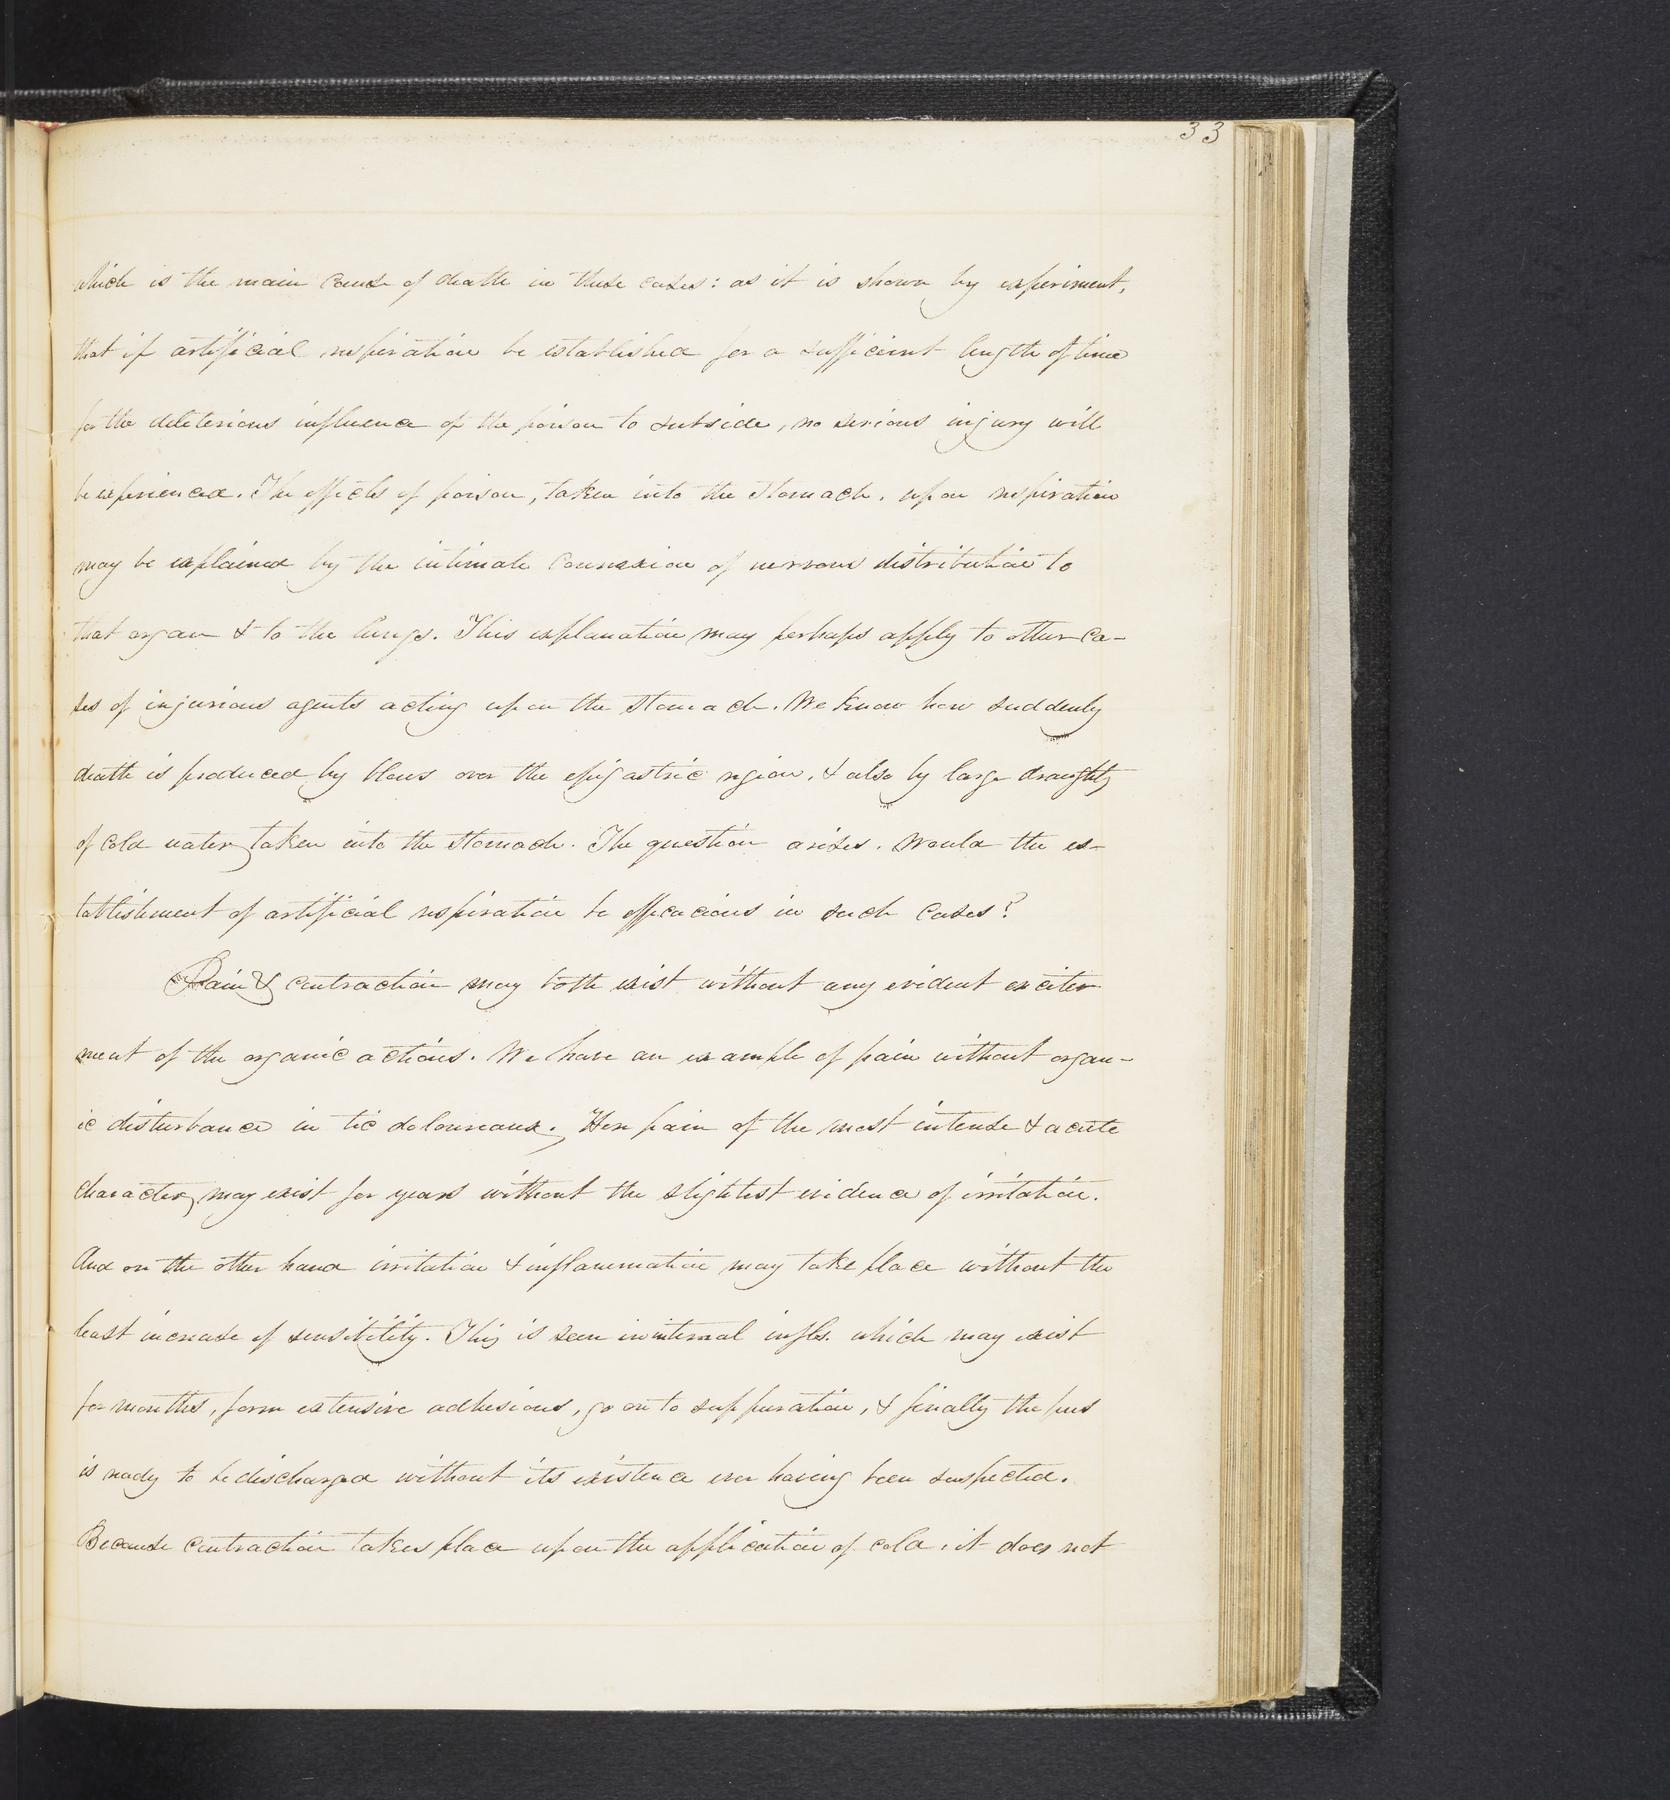 33
which is the main cause of death in these cases: as it is shown by experiment,
that if artificial respiration be established for a sufficient length of time
for the deleterious influence of the poison to subside, no serious injury will
be experienced. The effects of poison, taken into the stomach, upon respiration
may be explained by the intimate connexion of nervous distribution to
that organ & to the lungs. This explanation may perhaps apply to other ca-
ses of injurious agents acting upon the stomach. We know how suddenly
death is produced by blows over the epigastric region, & also by large draughts
of cold water, taken into the stomach. The question arises. Would the es-
tablishment of artificial respiration be efficacious in such cases?
Pain & contraction may both exist without any evident excite-
ment of the organic actions. We have an example of pain without organ-
ic disturbance in tic doloureaux. Here pain of the most intense & acute
character, may exist for years without the slightest evidence of irritation.
And on the other hand irritation & inflammation may take place without the
least increase of sensibility. This is seen in internal infls. which may exist
for months, form extensive adhesions, go on to suppuration, & finally the pus
is ready to be discharged without its existence ever having been suspected.
Because contraction takes place upon the application of cold, it does not